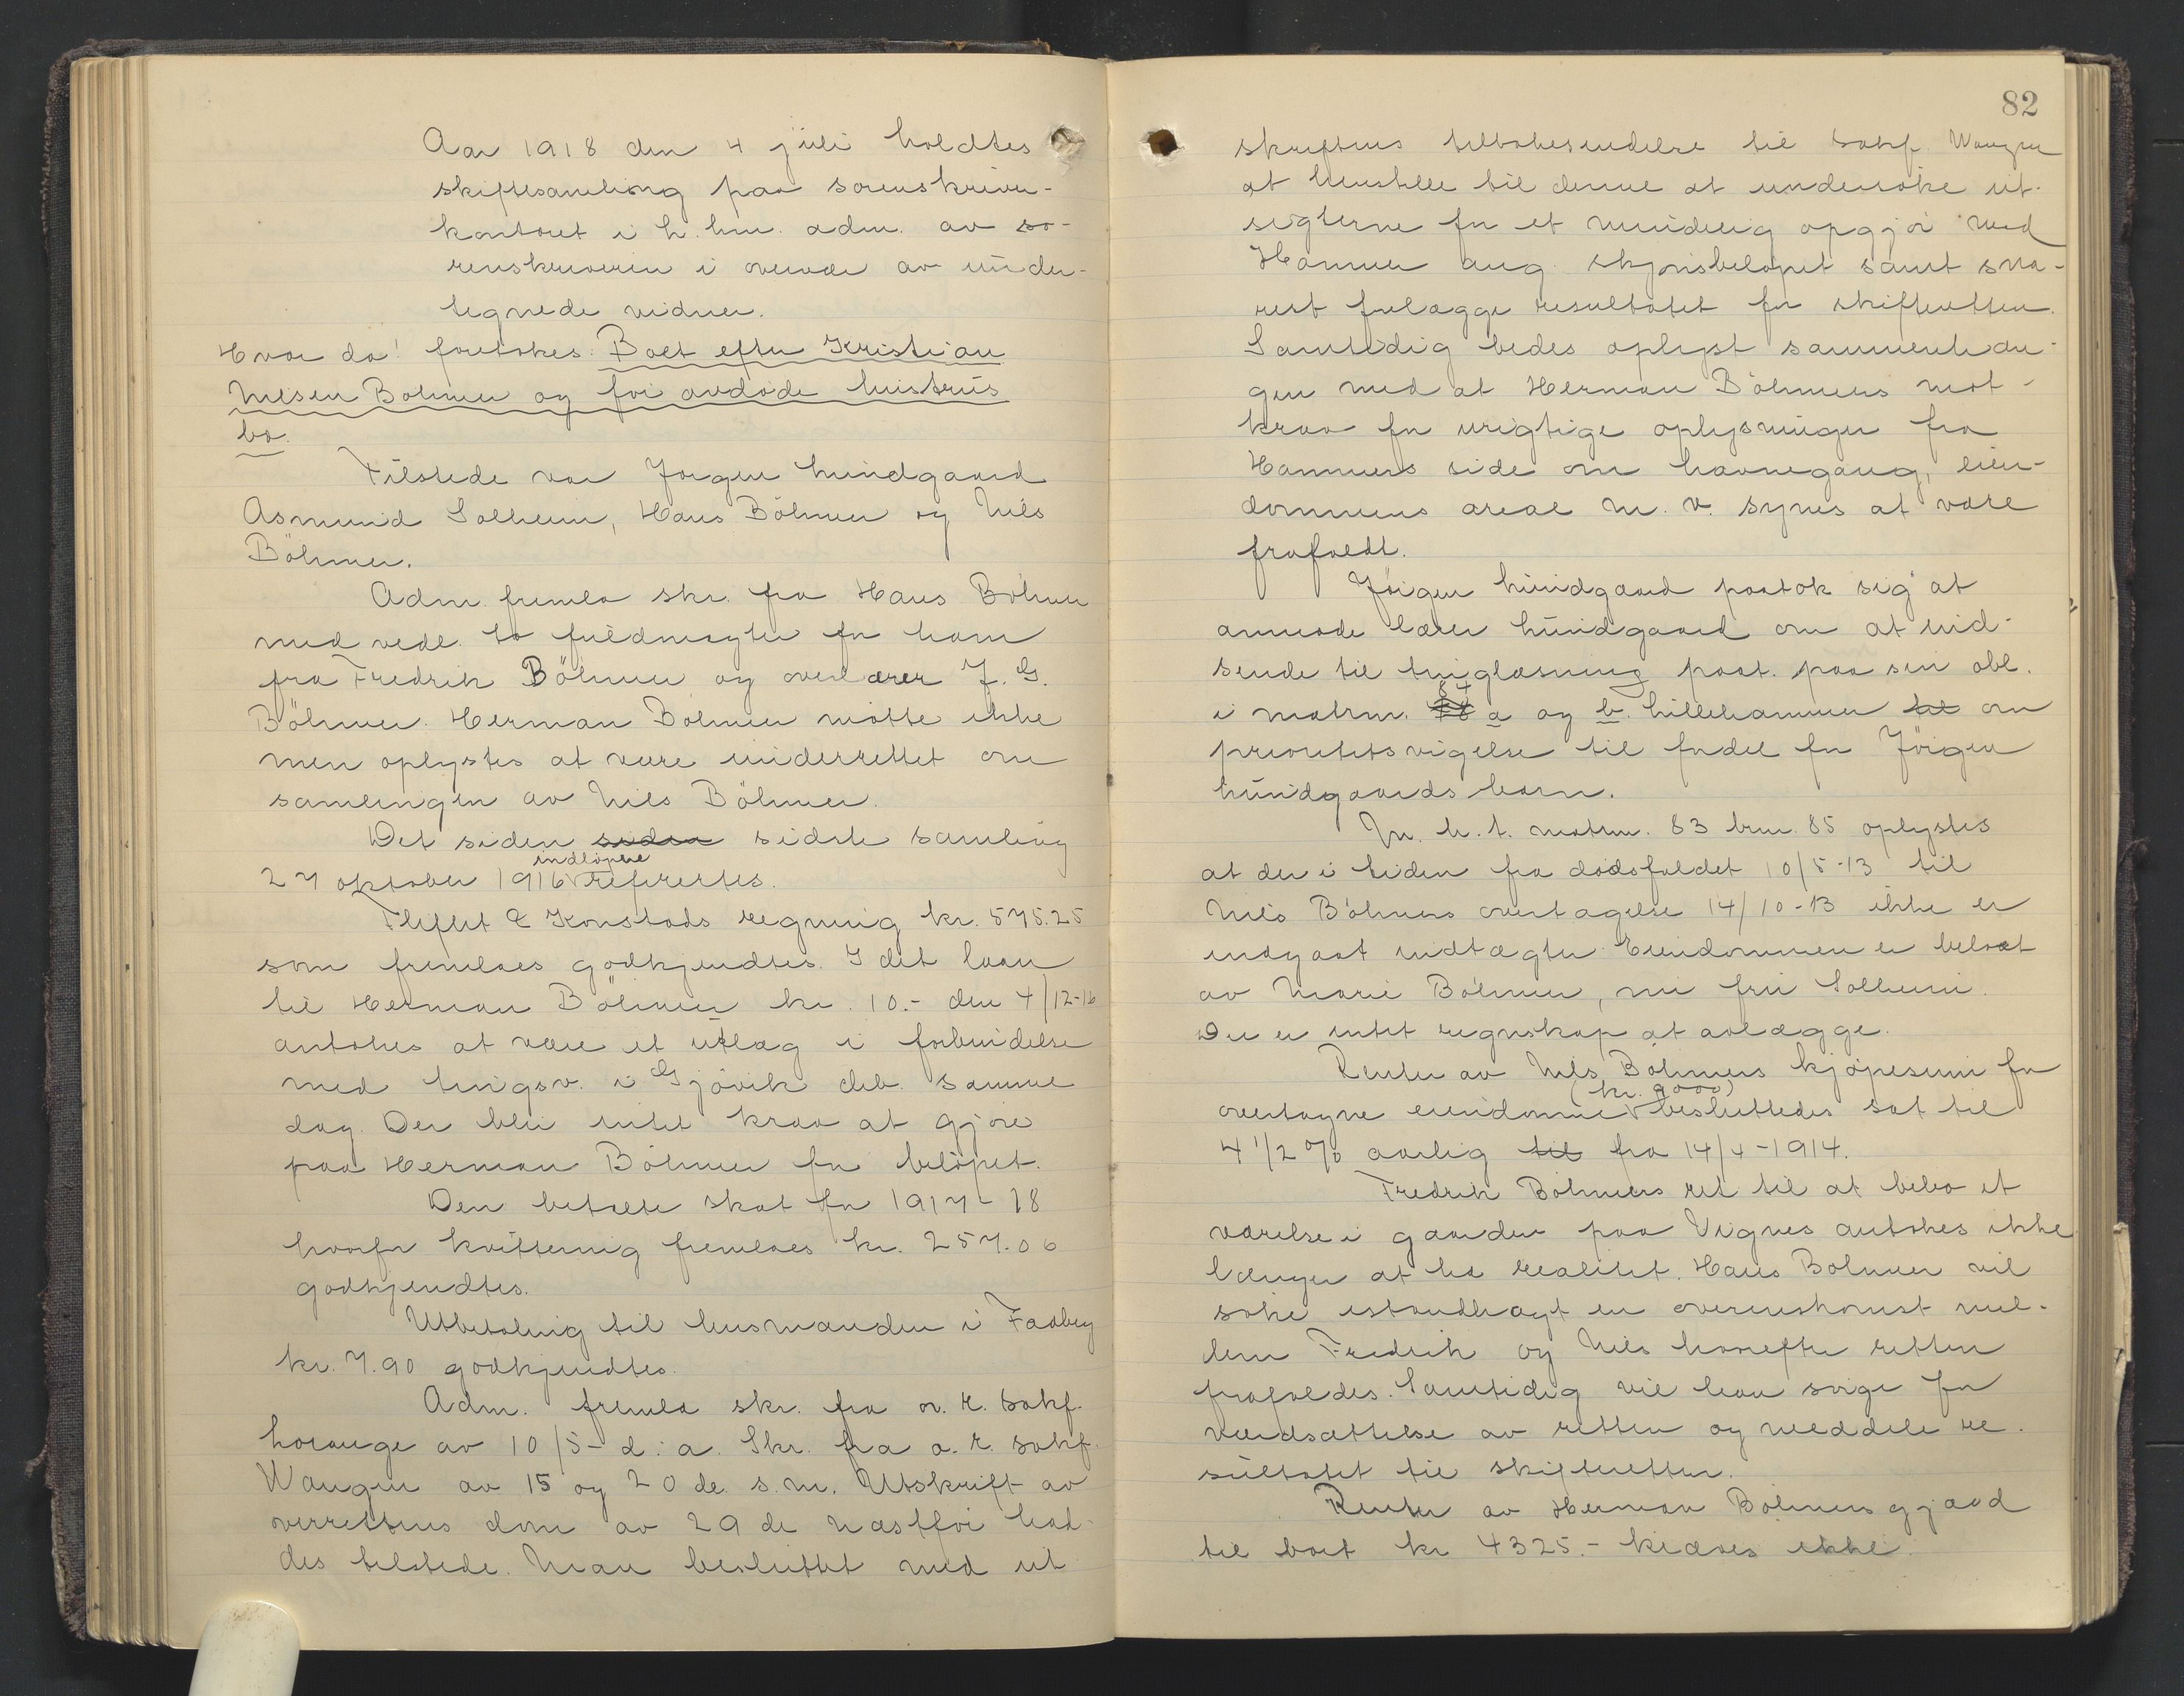 Aar 1918 den 4 juli holdtes
skiftesamling paa sorenskriver-
kontoret i L.hm. adm. av so-
renskriveren i overvær av under-
tegnede vidner.
Hvor da! foretokes: Boet efter Kristian
Nilsen Böhmer og för avdöde hustrus
bo.
Tilstede var Jørgen Lundgaard
Asmund Solheim, Hans Böhmer og Nils
Böhmer.
Adm. fremla skr. fra Hans Böhmer
med vedl. to fuldmagter for ham
fra Fredrik Böhmer og overlærer J. G.
Böhmer. Herman Böhmer mötte ikke
men oplystes at være underrettet om
samlingen av Nils Böhmer.
Det siden sidste samling
27 oktober 1916 indlöpne refrertes.
Fliflet & Konstads regning kr. 575.25
som fremlaes godkjendtes. I det laan
til Herman Böhmer kr. 10.- den 4/12-16
antokes at være et utlæg i forbindelse
med tingsv. i Gjövik deb. samme
dag. Der blir intet krav at gjöre
paa Herman Böhmer for belöpet.
Den betalte skat for 1917-18
hvorfor kvittering fremlaes kr. 257.06
godkjendtes.
Utbetaling til husmanden i Faaberg
kr. 7.90 godkjendtes.
Adm. fremla skr. fra o. r. sakf.
Lorange av 10/5- d. a. Skr. fra o. r. sakf.
Wangen av 15 og 20 de s.m. Utskrift av
overrettens dom av 29 de næstför had-
des tilstede. Man besluttet med ut
82
skriftens tilbakesendelse til sakf. Wangen
at henstille til denne at undersöke ut-
sigterne for et mindelig opgjör med
Hammer ang. skjönsbelöpet samt sna-
rest forelægge resultatet for skifteretten.
Samtidig bedes oplyst sammenhæn-
gen med at Herman Böhmers mot-
krav for urigtige oplysninger fra
Hammers side om havnegang, eien-
dommens areal m. v. synes at være
frafaldt.
Jörgen Lundgaard paatok sig at
anmode lærer Lundgaard om at ind-
sende til tinglæsning paat. paa sin obl.
i matrn. 84 a og b. Lillehammer om
prioritetsvigelse til fordel for Jörgen
Lundgaards barn.
In. h. t. matrn. 83 brn. 85 oplystes
at der i tiden fra dödsfaldet 10/5-13 til
Nils Böhmers overtagelse 14/10-13 ikke er
indgaat indtægter. Eiendommen er beboet
av Marie Böhmer, nu fru Solheim.
Der er intet regnskap at avlægge.
Renter av Nils Böhmers kjöpesum for
overtagne eiendomme (kr. 9000) besluttedes sat til
4 1/2 % aarlig fra 14/4-1914.
Fredrik Böhmers ret til at bebo et
værelse i gaarden paa Vignes antokes ikke
længer at ha realitet. Hans Böhmer vil
söke istandbragt en overenskomst mel-
lem Fredrik og Nils hvorefter retten
frafaldes. Samtidig vil han sörge for
værdsættelse av retten og meddele re-
sultatet til skifteretten.
Renter av Herman Böhmers gjæld
til boet kr 4325.- kræves ikke.